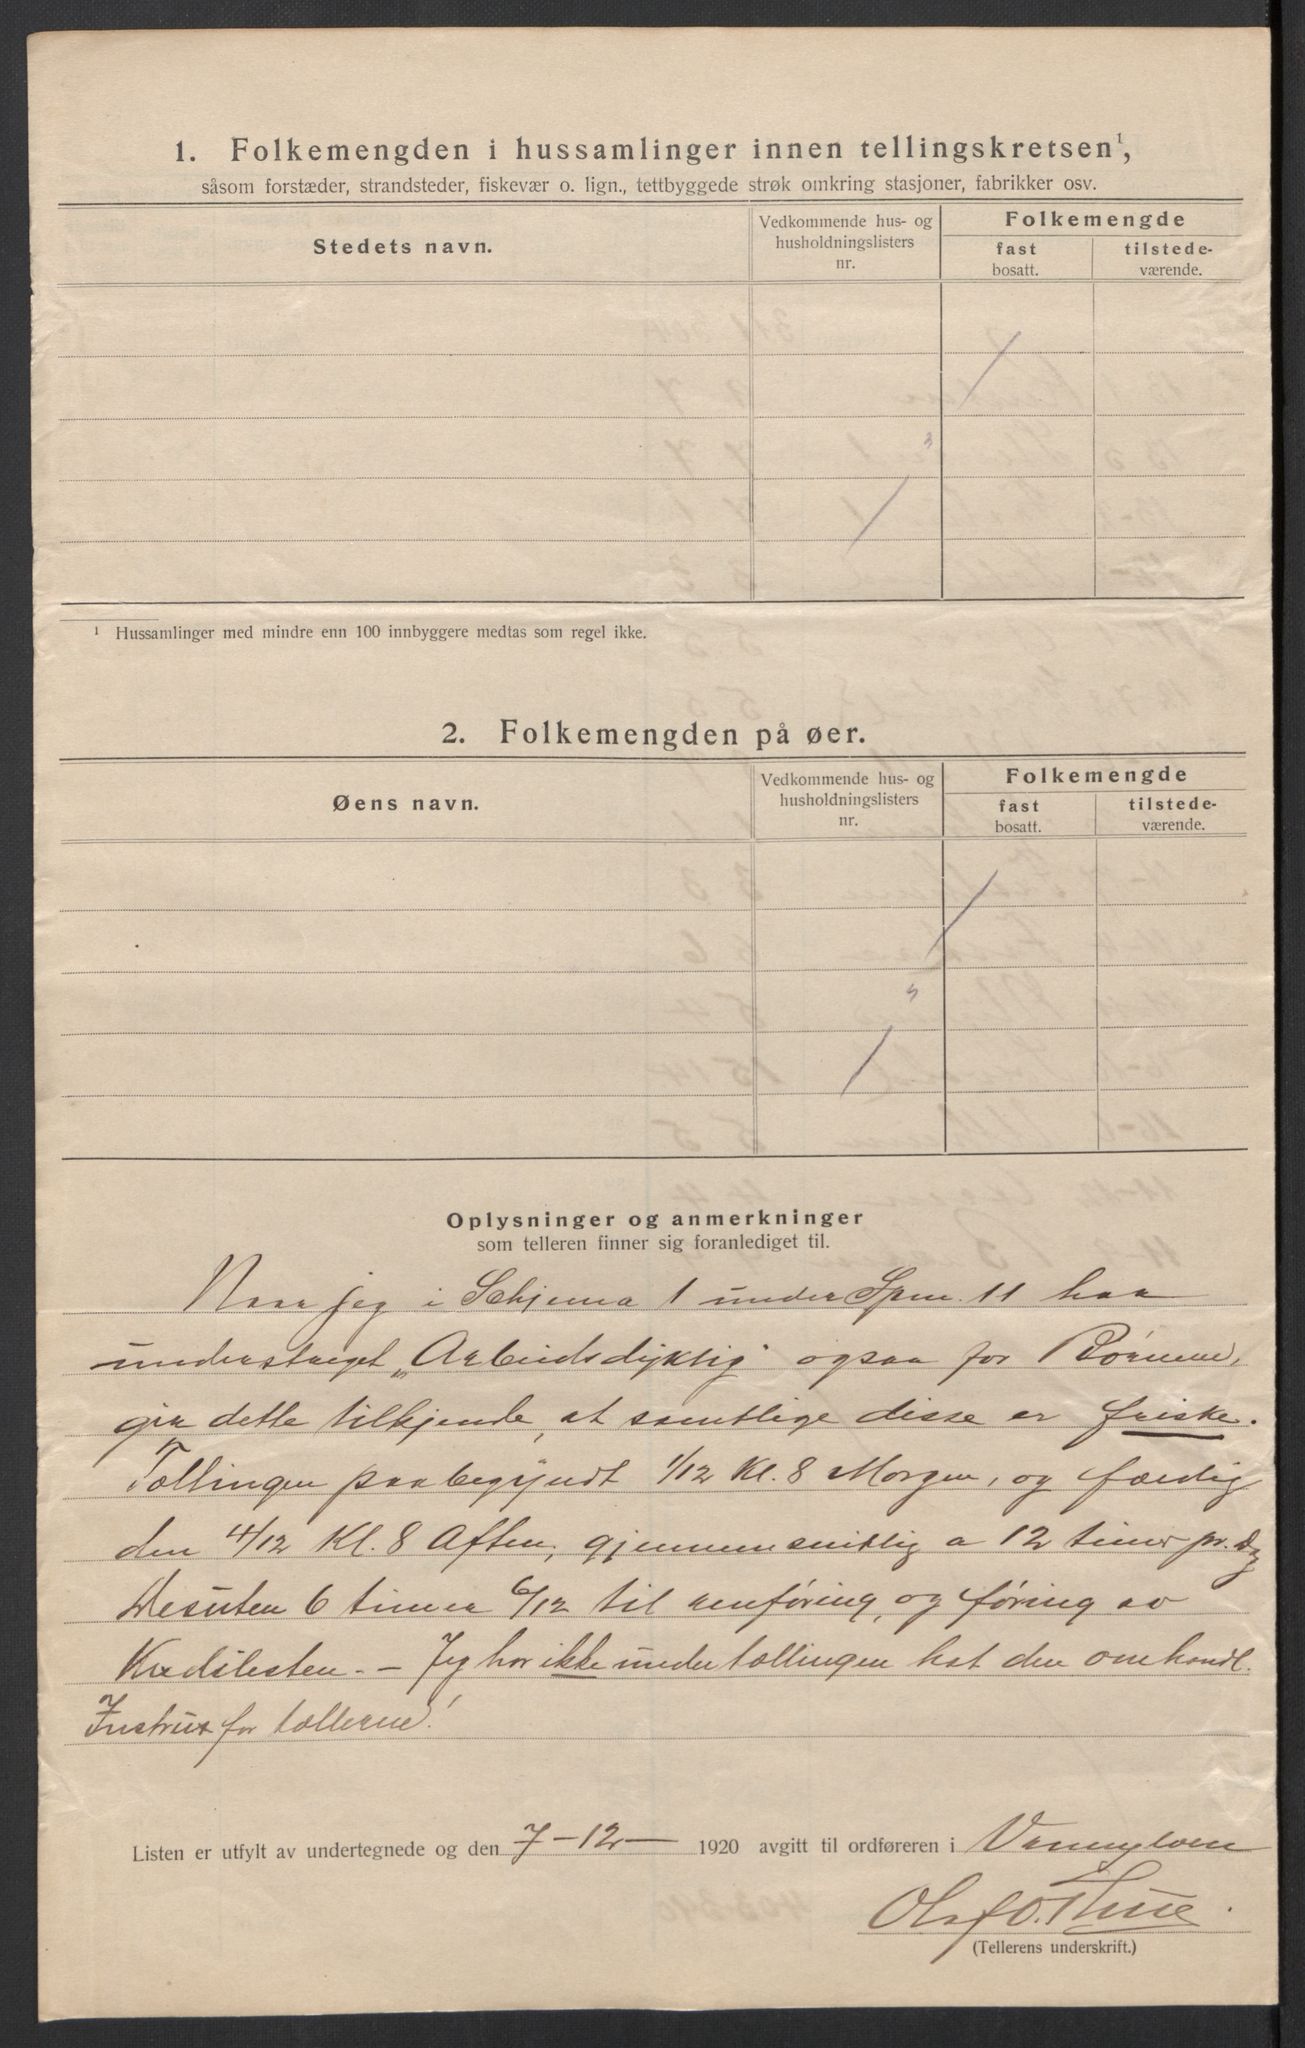 1. Folkemengden i hussamlinger innen tellingskretsen¹,
såsom forstæder, strandsteder, fiskevær o. lign., tettbyggede strøk omkring stasjoner, fabrikker osv.
Stedets navn.
Vedkommende hus- og
husholdningslisters
nr.
Folkemengde
fast
bosatt.
tilstede-
værende.
"
¹ Hussamlinger med mindre enn 100 innbyggere medtas som regel ikke.
2. Folkemengden på øer.
Øens navn.
Vedkommende hus- og
husholdningslisters
nr.
Folkemengde
fast
bosatt.
tilstede-
værende.
"
Oplysninger og anmerkninger
som telleren finner sig foranlediget til.
Naar jeg i Schjema 1 under Spm. 11 har
understreget „Arbeidsdyktig" ogsaa for Børnene,
gir dette tilkjende, at samtlige disse er friske.
Tællingen paabegyndt 1/12 Kl. 8 Morgen, og færdig
den 4/12 Kl. 8 Aften, gjennemsnitlig a 12 timer pr. Dag
Desuten 6 timer 6/12 til renføring, og føring av
- Jeg har ikke under tællingen hat den omhandl.
Instrux for tællerne!
Listen er utfylt av undertegnede og den 7-12- 1920 avgitt til ordføreren i Vannylven
Olaf O. Thue.
(Tellerens underskrift.)